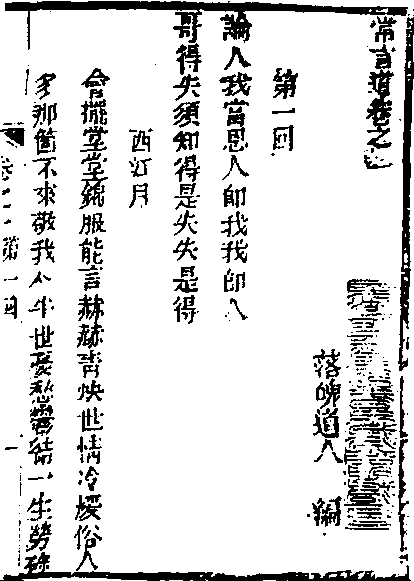 常言道卷之一
落魄道人 編
第一回
論人我當思人即我我即人
哥得失須知得是失失是得
西江月
會擺堂堂服能言赫赫青蚨世情冷煖俗人
多那箇不來敬我 半世憂愁鬱結一生勞碌
卷之一 第一回 一